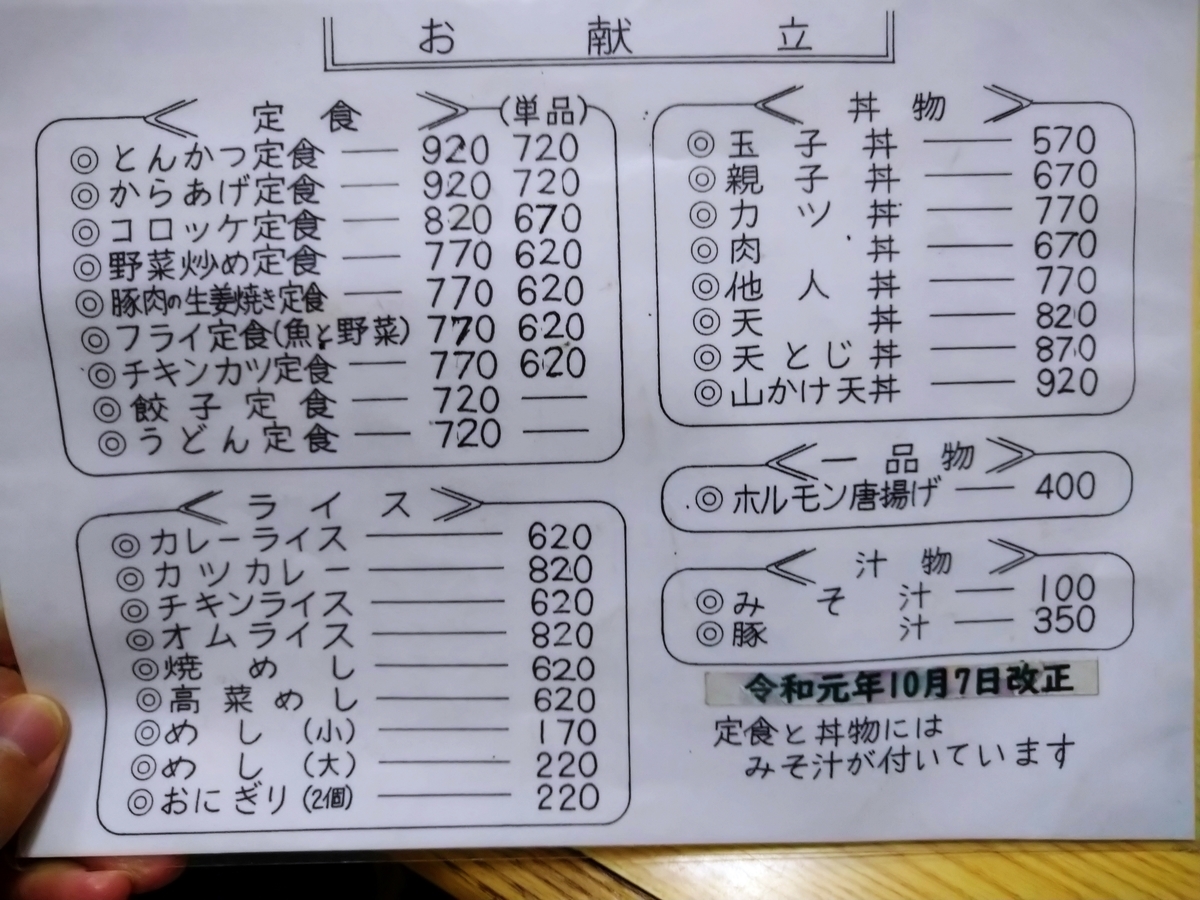 お献立
定食 (単品)
◎とんかつ定食 ── 920 720
◎からあげ定食 ── 920 720
◎コロッケ定食 ── 820 670
◎野菜炒め定食 ── 770 620
◎豚肉の生姜焼き定食 ── 770 620
◎フライ定食(魚と野菜) 770 620
◎チキンカツ定食 ── 770 620
◎餃子定食 ── 720 ──
◎うどん定食 ── 720 ──
ライス
◎カレーライス ── 620
◎カツカレー ── 820
◎チキンライス ── 620
◎オムライス ── 820
◎焼めし ── 620
◎高菜めし ── 620
◎めし(小) ── 170
◎めし(大) ── 220
◎おにぎり(2個) ── 220
丼物
◎玉子丼 ── 570
◎親子丼 ── 670
◎カツ丼 ── 770
◎肉丼 ── 670
◎他人丼 ── 770
◎天丼 ── 820
◎天とじ丼 ── 870
◎山かけ天丼 ── 920
一品物
◎ホルモン唐揚げ ── 400
汁物
◎みそ汁 ── 100
◎豚汁 ── 350
令和元年10月7日改正
定食と丼物には
みそ汁が付いています